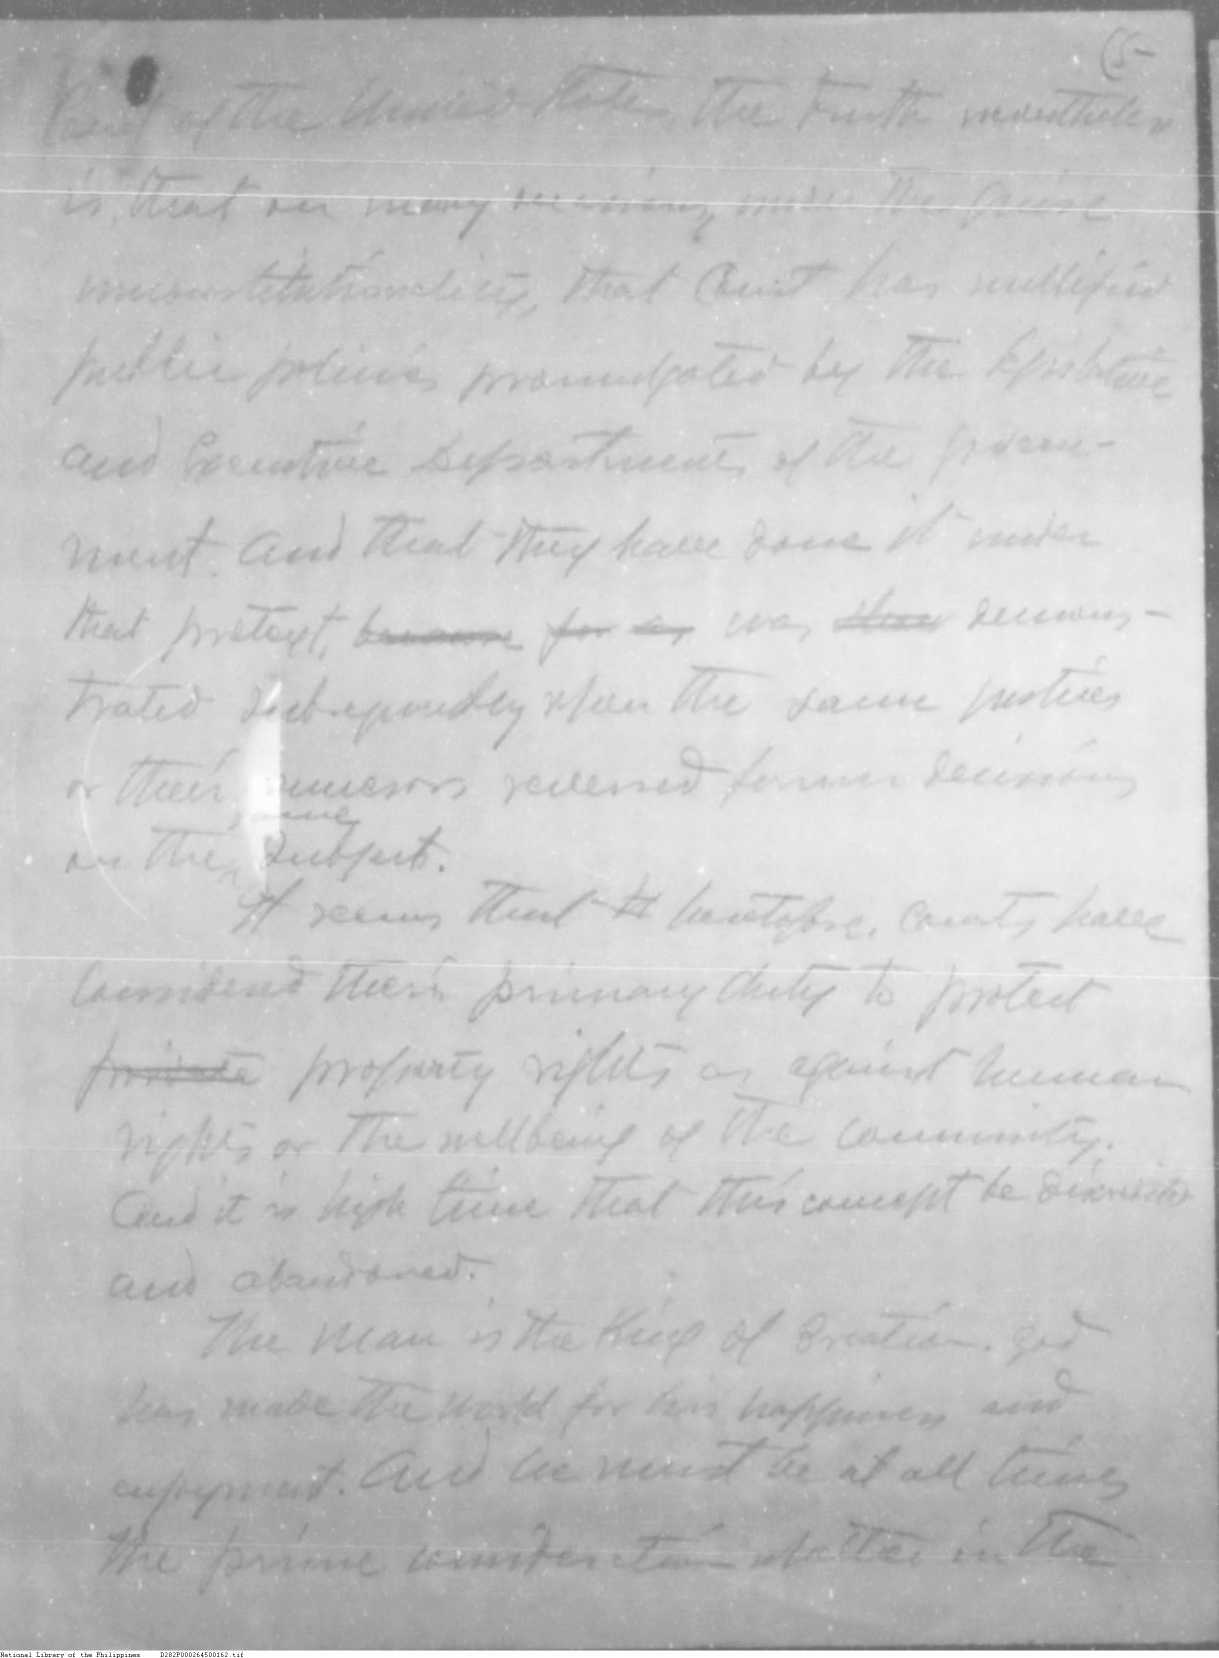 (5-
Court of the United States, the truth nevertheless
is, that on many occasions, under the guise
unconstitutionality, that Court has nullified
public policies promulgated by the legislative
and Executive Departments of the govern-
ment. And that they have done it under
that pretext, because for as was then demons-
trated subsequently when the same justices
or their successors reversed former decisions
on the same subject.
It seems that heretofore, courts have
considered their primary duty to protect
private property rights as against human
rights or the wellbeing of the community.
And it is high time that this concept be discarded
and abandoned.
The man is the King of Creation. God
has made the world for his happiness and
enjoyment. And he must be at all times
the prime consideration whether in the
National Library of the Philippines D282P000264500162.tif